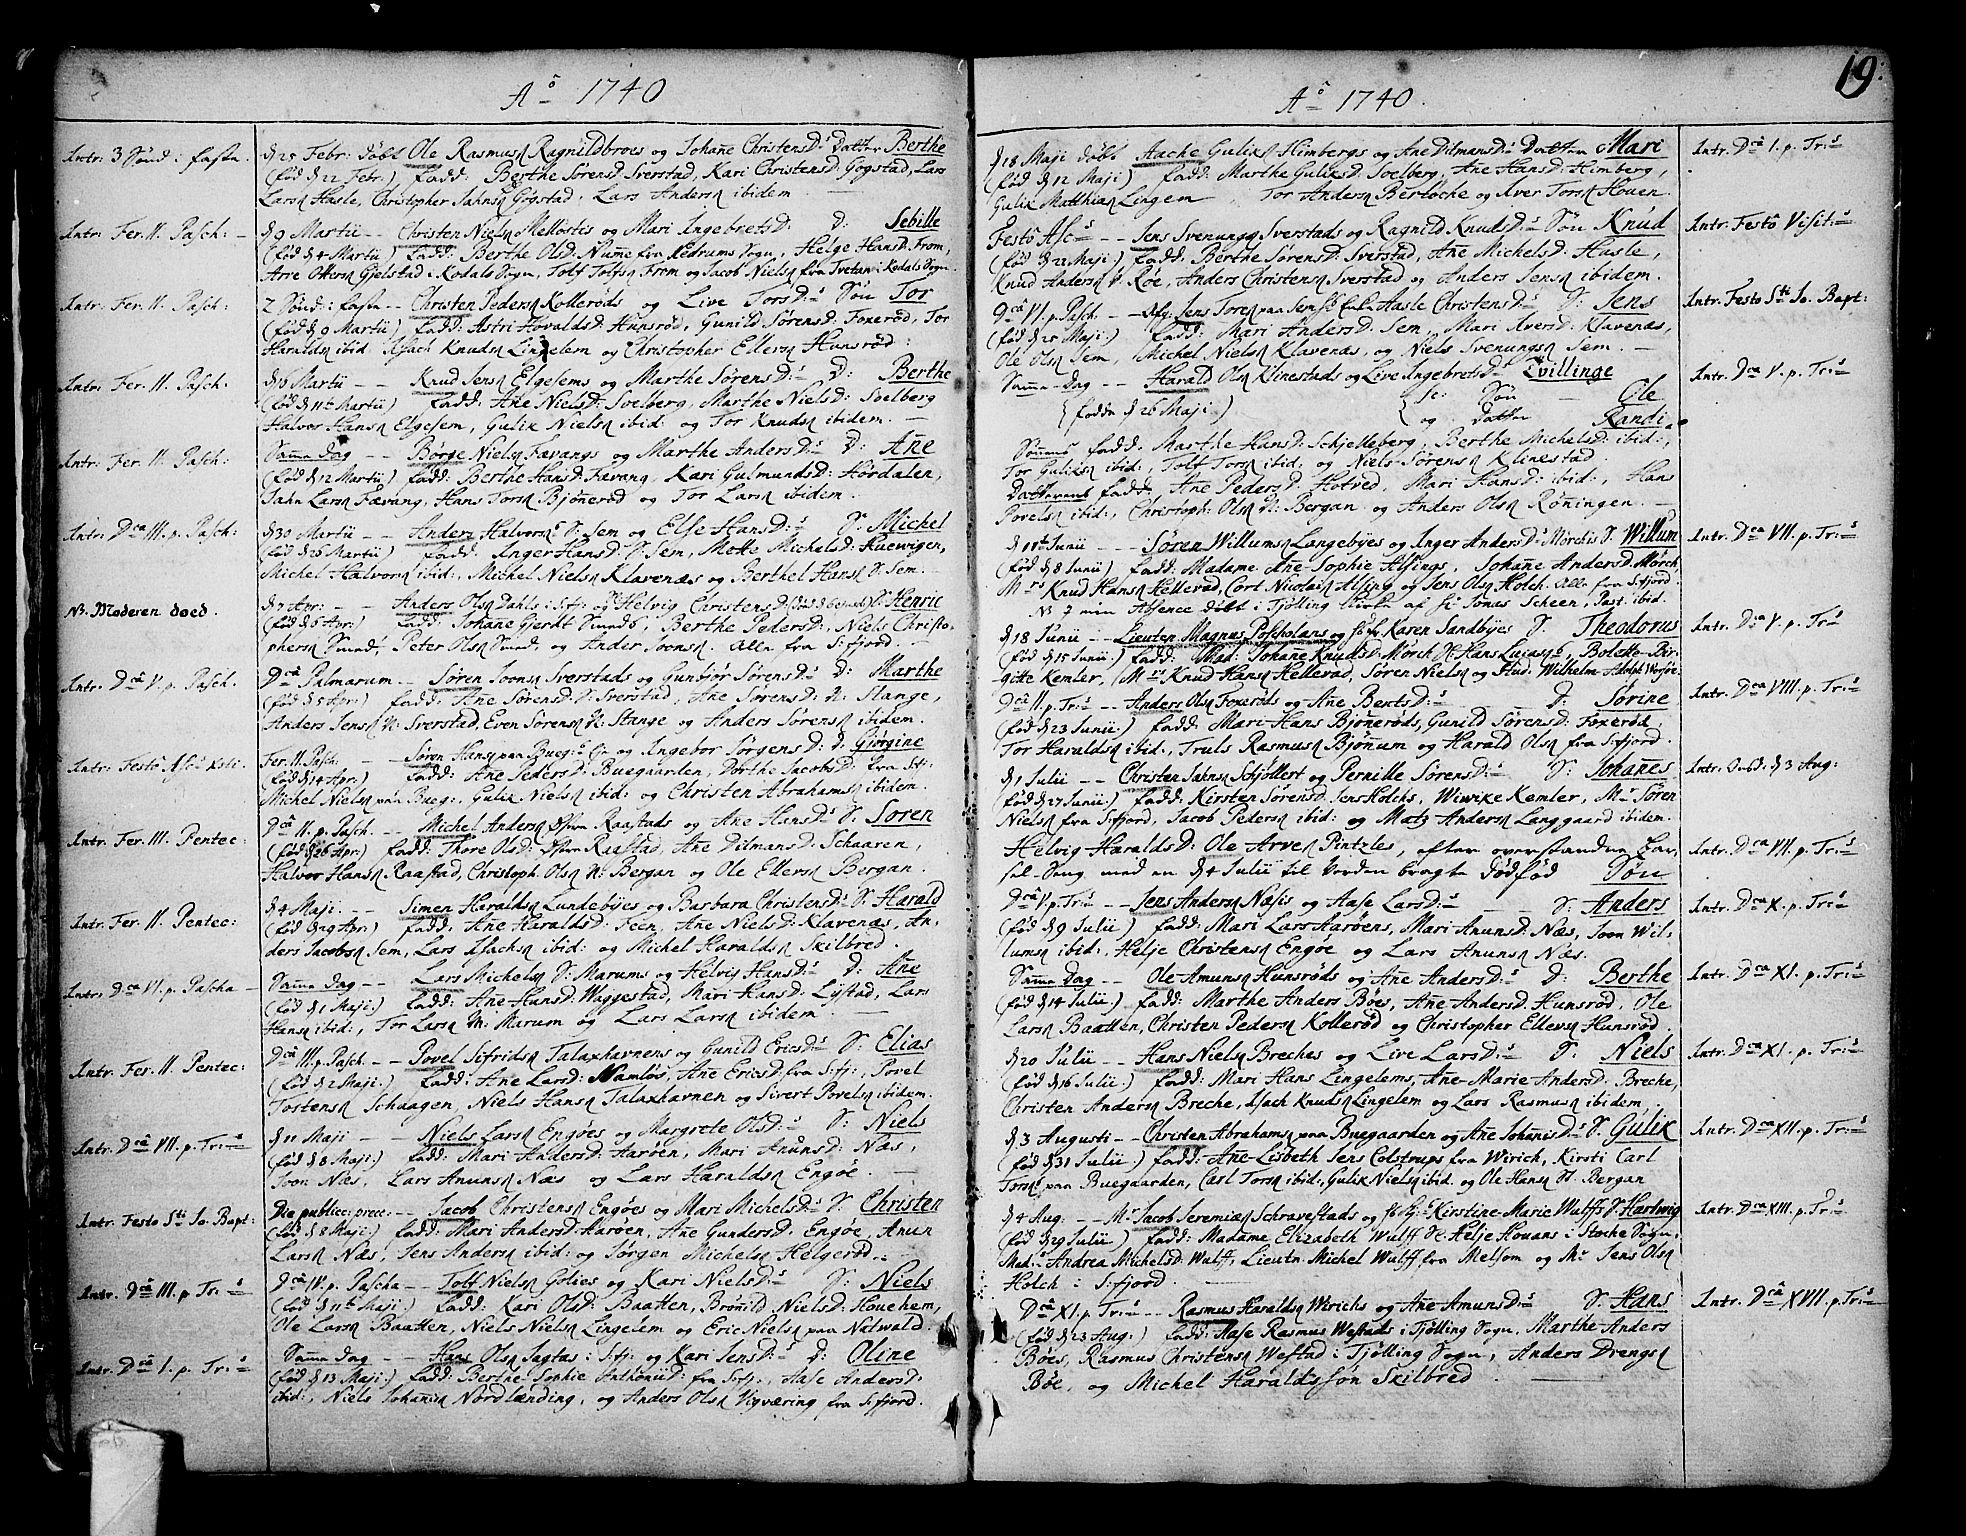 Aō 1740
Intr: 3 Sønd: faste.
d 25 Febr: døbt Ole Rasmusn Ragnildbroes og Johañe Christens D:s Datter Berthe
(fød d 22 Febr:) fadd: Berthe Sørens D: Sverstad, Kari Christens D: Gogstad, Lars
Larsn Hasle, Christopher Jahnsn Gogstad, Lars Andersn ibidem
Intr: Fer. II. Pasch: -
d 9 Martii -- Christen Nielsn Mellostis og Mari Ingebrets D: D: Sebille
(fød d 4 Martii) fadd: Berthe Ols D: Nume fra Hedrums Sogn, Helge Hans D: From,
Arve Ottersn Gjelstad i Kodals Sogn, Tolf Tolfsn From og Jacob Nielsn fra Tvetan i Kodals Sogn.
Intr: Fer. II. Pasch:
2 Sønd: faste -- Christen Pedersn Kollerøds og Live Tors D:s Søn Tor
(fød d 9 Martii) fadd: Astri Hovalds D: Hunsrød, Gunild Sørens D: Foxerød, Tor
Haraldsn ibid: Isach Knudsn Lingelem og Christopher Ellersn Hunsrød:
Intr: Fer. II. Pasch:
d 13 Martii -- Knud Jensn Elgesems og Marthe Sørens D:s D: Berthe
(fød d 11te Martii) fadd: Ane Niels D: Soelberg, Marthe Niels D: Soelberg
Halvor Hansn Elgesem, Gulik Nielsn ibid: og Tor Knudsn ibidem. -
Intr: Fer. II. Pasch:
Saña Dag -- Børge Nielsn Fævangs og Marthe Anders D:s D: Añe
(fød d 12 Martii) fadd: Berthe Hans D: Fævang, Kari Gulmunds D: Hørdalen,
Jahn Larsn Fævang, Hans Torsn Bjøñerød og Tor Larsn ibidem.
Intr: Dca III. p. Pasch:
d 30 Martii -- Anders Halvorsn S: Sem og Else Hans D:s S: Michel
(fød d 26 Martii) fadd: Inger Hans D: S: Sem, Mette Michels D: Huewigen,
Michel Halvorsn ibid:, Michel Nielsn Klavenæs og Berthel Hansn S: Sem. -
NB. Moderen døed.
d 7 Apr: -- Anders Olsn Dahls i S:fj: og Helvig Christens D: S: Henric
(fød d 6 Apr:) fadd: Johañe Gjerdt Smeds, Berthe Peders D:, Niels Christo-
phersn Smed, Peter Olsn Smed, og Ander Joonsn. Alle fra S:fjord. -
Intr: Dca V. p. Pasch.
Dca Palmarum -- Søren Joonsn Sverstads og Gunbjør Sørens D:s D: Marthe
(fød d 5 Apr:) fadd: Ane Sørens D: S: Sverstad, Ane Sørens D: N: Stange,
Anders Jensn N: Sverstad, Even Sørensn N: Stange og Anders Sørensn ibidem.
Intr: Festo
Fer. II. Pasch: -- Søren Hansn paa Bueg:s og Ingebor Jørgens D: D: Gjørgine
(fød d 14 Apr:) fadd: Ane Peders D: Buegaarden, Dorthe Jacobs D: fra S:fj:
Michel Nielsn paa Bueg:, Gulik Nielsn ibid: og Christen Abrahamsn ibidem.
Intr: Fer. III. Pentec:
Dca II. p. Pasch. -- Michel Andersn Østre Raastads og Ane Hans D:s S: Søren
(fød d 26 Apr:) fadd: Thore Ols D: Østre Raastad, Ane Ditmans D: Schaaren,
Halvor Hansn Raastad, Christoph. Olsn N: Bergan og Ole Ellersn Bergan.
Intr: Fer. II. Pentec:
d 4 Maji. -- Simen Haraldsn Lundebyes og Barbara Christens D:s S: Harald
(fød d 29 Apr:) fadd: Ane Haralds D: Feen, Ane Niels D: Klavenæs, An-
ders Jacobsn Sem, Lars Isachsn ibid: og Michel Haraldsn Skilbred.
Intr: Dca VI. p. Pascha -
Saña Dag -- Lars Michelsn S: Marums og Helvig Hans D:s D: Añe
(fød d 1 Maji:) fadd: Ane Hans D: Waggestad, Mari Hans D: Lystad, Lars
Hansn ibid:, Tor Larsn M: Marum og Lars Larsn ibidem. -
Intr: Fer. II Pentec:
Dca III. p. Pasch -- Povel Sifridsn Talaxhavnens og Gunild Erics D:s S: Elias
(fød d 2 Maji:) fadd: Ane Lars D: Namløs, Ane Erics D: fra S:fj:, Povel
Tostensn Schaagen, Niels Hansn Talaxhavnen og Sivert Povelsn ibidem.
Intr. Dca VII. p. Tr:s
d 11 Maji -- Niels Larsn Engøes og Margrete Ols D:s S: Niels
(fød d 8 Maji:) fadd: Mari Anders D: Harøen, Mari Anuns D: Næs,
Joon Næs, Lars Anunsn Næs og Lars Haraldsn Engøe. -
Intr. Festo Sti Jo. Bapt:
Die public: prec: -- Jacob Christensn Engøes og Mari Michels D:s S: Christen
(fød d 8 Maji:) fadd: Mari Anders D: Harøen, Ane Gunders D: Engøe, Anun
Larsn Næs, Jens Andersn ibid: og Jørgen Michelsn Helgerød. -
Intr. Dca III. p Tr:s
Dca IV. p. Pascha - Tolf Nielsn Golies og Kari Niels D:s S: Niels
(fød d 11te Maji:) fadd: Kari Ols D: Baatten, Brønild Niels D: Houehem,
Ole Larsn Baatten, Niels Nielsn Lingelem og Eric Nielsn paa Natwald.
Intr. Dca I. p. Tr:s
Saña Dag -- Hans Olsn Jagtas i S:fj: og Kari Jens D:s D: Oline
(fød d 13 Maji:) fadd: Berthe Sophie Anthoni D: fra S:fj:, Aase Anders D:
ibid:, Niels Johansn Nordlænding, og Anders Olsn Vigværing fra S:fjord.
19:
Aō 1740.
d 18 Maji døbt Aache Guliksn Himbergs og Ane Ditmans D:s Datter Mari
Intr. Dca I. p. Tr:s
(fød d 12 Maji) fadd: Marthe Guliks D: Soelberg, Ane Hans D: Himberg,
Gulik Matthiasn Lingem, Tor Andersn Bertoche og Iver Torsn Houen.
Festo Asc:s -- Jens Svenungsn Sverstads og Ragnild Knuds D:s Søn Knud
Intr. Festo Visit:s
(fød d 22 Maji:) fadd: Berthe Sørens D: Sverstad, Ane Michels D: Hasle,
Knud Andersn V. Røe, Anders Christensn Sverstad og Anders Jensn ibidem.
Dca VI. p. Pasch. -- Afg: Jens Torsn paa Sem Enke Aasle Christens D:s S: Jens
Intr. Festo Sti Jo. Bapt:
(fød d 25 Maji:) fadd: Mari Anders D: Sem, Mari Ivers D: Klavenæs,
Ole Olsn Sem, Michel Nielsn Klavenæs, og Niels Svenungsn Sem. -
Saña Dag -- Harald Olsn Klinestads og Live Ingebrets D:s Tvillinge
Intr. Dca V. p. Tr:s
(fødde d 26 Maji:) se: Søn - Ole
og Datter Randi
Søñens fadd. Marthe Hans D: Schjelleberg, Berthe Michels D: ibid:,
Tor Guliksn ibid:, Tolf Torsn ibid: og Niels Sørensn Klinestad.
Datterens fadd: Ane Peders D: Hotved, Mari Hans D: ibid:, Hans
Povelsn ibid:, Christoph: Olsn N: Bergan og Anders Olsn Røningen. -
d 11te Junii -- Søren Willumsn Langebyes og Inger Anders D:s Mørchs S. Willum
Intr. Dca VII. p. Tr:s
(fød d 8 Junii) fadd: Madame Ane-Sophie Alsings, Johañe Anders D: Mørch
Mrs Knud Hansn Hellerad, Cort Nicolai Alsing og Jens Olsn Holch. Alle fra S:fjord.
NB I min Absence døbt i Tjølling Kirke af Hr Jonas Scheen, Past. ibid.
d 18 Junii -- Lieuten. Magnus Poscholans og Fr. Karen Sandbyes S: Theodorus
Intr. Dca V. p. Tr:s
(fød d 15 Junii) fadd: Mad: Johañe Knuds D: Mørch, Hans Lujasn, Bolette-Bir-
gitte Kemler, (Mrs Knud Hansn Hellerad, Søren Nielsn og Stud. Wilhelm Adolph Worsøe.
Dca II. p. Tr:s -- Anders Olsn Foxerøds og Ane Berts D:s D: Sørine
Intr. Dca VIII. p. Tr:s
(fød d 23 Junii:) fadd: Mari Hans Bjøñerøds, Gunild Sørens D: Foxerød,
Tor Haraldsn ibid:, Truls Rasmusn Bjøñum og Harald Olsn fra S:fjord.
d 1 Julii -- Christen Jahnsn Schjøllert og Pernille Sørens D:s S: Johañes
Intr. Onsd: d 3 Aug:
(fød d 27 Junii:) fadd: Kirsten Sørens D: Jens Holchs, Wiwike Kemler, Mr Søren
Nielsn fra S:fjord, Jacob Pedersn ibid: og Matz Andersn Langgaard ibidem.
Helvig Haralds D: Ole Arvesn Pintzles, efter overstanden Bar-
Intr. Dca VII. p. Tr:s
sel-Seng med en d 4 Julii til Verden bragte dødfød Søn
Dca V. p. Tr:s -- Jens Andersn Næsis og Aase Lars D:s - S: Anders
Intr. Dca X. p. Tr:s
(fød d 9 Julii:) fadd: Mari Lars Harøens, Mari Anuns D: Næs, Joon Wil-
lumsn ibid: Helje Christensn Engøe og Lars Anunsn Næs.
Saña Dag -- Ole Amunsn Hunsrøds og Ane Anders D:s D: Berthe
Intr. Dca XI. p. Tr:s
(fød d 14 Julii:) fadd: Marthe Anders Boes, Ane Anders D: Hunsrød, Ole
Larsn Baatten, Christen Pedersn Kollerød og Christopher Ellersn Hunsrød.
d 20 Julii -- Hans Nielsn Breches og Live Lars D:s S: Niels
Intr. Dca XI. p. Tr:s
(fød d 16 Julii:) fadd: Mari Hans Lingelems, Ane-Marie Anders D: Breche,
Christen Andersn Breche, Isach Knudsn Lingelem og Lars Rasmusn ibidem.
d 3 Augusti - Christen Abrahamsn paa Buegaarden og Ane Johañis D:s S: Gulik
Intr. Dca XII. p. Tr:s
(fød d 31 Julii:) fadd: Ane-Lisbeth Jens Colstrups fra Wirich, Kirsti Carl
Torsn paa Buegaarden, Carl Torsn ibid:, Gulik Nielsn ibid. og Ole Hansn N. Bergan
d 4 Aug: - Mr Jacob Jeremiæsn Schravestads og Kirstine-Marie Wulffs S. Hartwig
Intr. Dca XIII. p. Tr:s
(fød d 29 Julii) fadd: Madame Elizabeth Wulff Sr Helje Houans i Stoche Sogn,
Mad:s Andrea Michels D: Wulff, Lieutn. Michel Wulff fra Melsom og Mr Jens Olsn
Holch i S:fjord.
Dca XI. p. Tr:s -- Rasmus Haraldsn Wirichs og Ane Amuns D:s S. Hans
Intr. Dca XVII. p. Tr:s
(fød d 23 Aug:) fadd: Aase Rasmus Westads i Tjølling Sogn, Marthe Anders
Bøes, Rasmus Christensn Westad i Tjølling Sogn, Anders Drengsn
Bøe, og Michel Haraldssøn Skilbred.